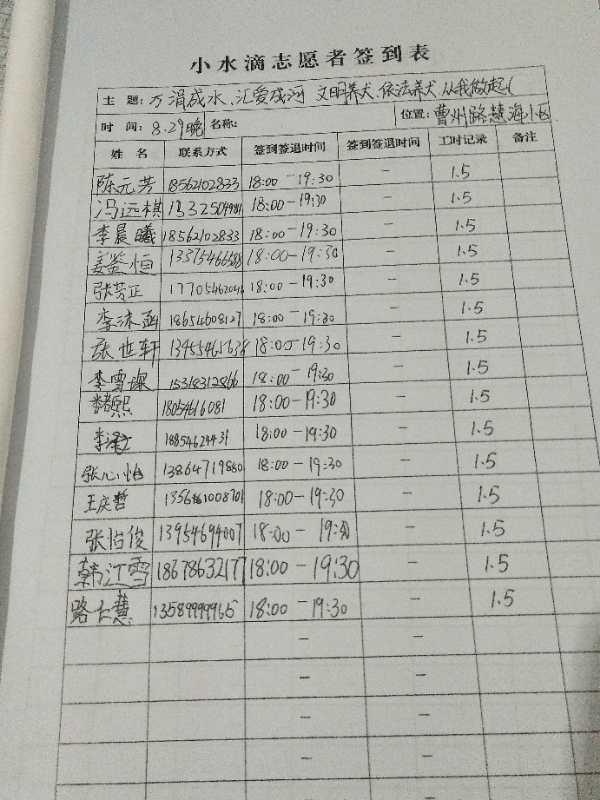 小水滴志愿者签到表
主 题: 万涓成水、汇爱成河 文明养犬、依法养犬 从我做起(
时 间: 8.29晚 名称: 位置: 曹州路慧海小区
姓 名 联系方式 签到签退时间 签到签退时间 工时记录 备注
陈元芳 18562102833 18:00-19:30 - 1.5
冯远棋 18:00-19:30 - 1.5
李晨曦 18562102833 18:00-19:30 - 1.5
姜鉴恒 18:00-19:30 - 1.5
张芳正 18:00-19:30 - 1.5
李沐函 18654608127 18:00-19:30 - 1.5
张世轩 18:00-19:30 - 1.5
李雪琛 15318312866 18:00-19:30 - 1.5
18:00-19:30 - 1.5
18:00-19:30 - 1.5
张心怡 13864719880 18:00-19:30 - 1.5
王庆哲 18:00-19:30 - 1.5
张怡俊 13954694007 18:00-19:30 - 1.5
韩江雪 18678632177 18:00-19:30 - 1.5
路士慧 13589999965 18:00-19:30 - 1.5
- -
- -
- -
- -
- -